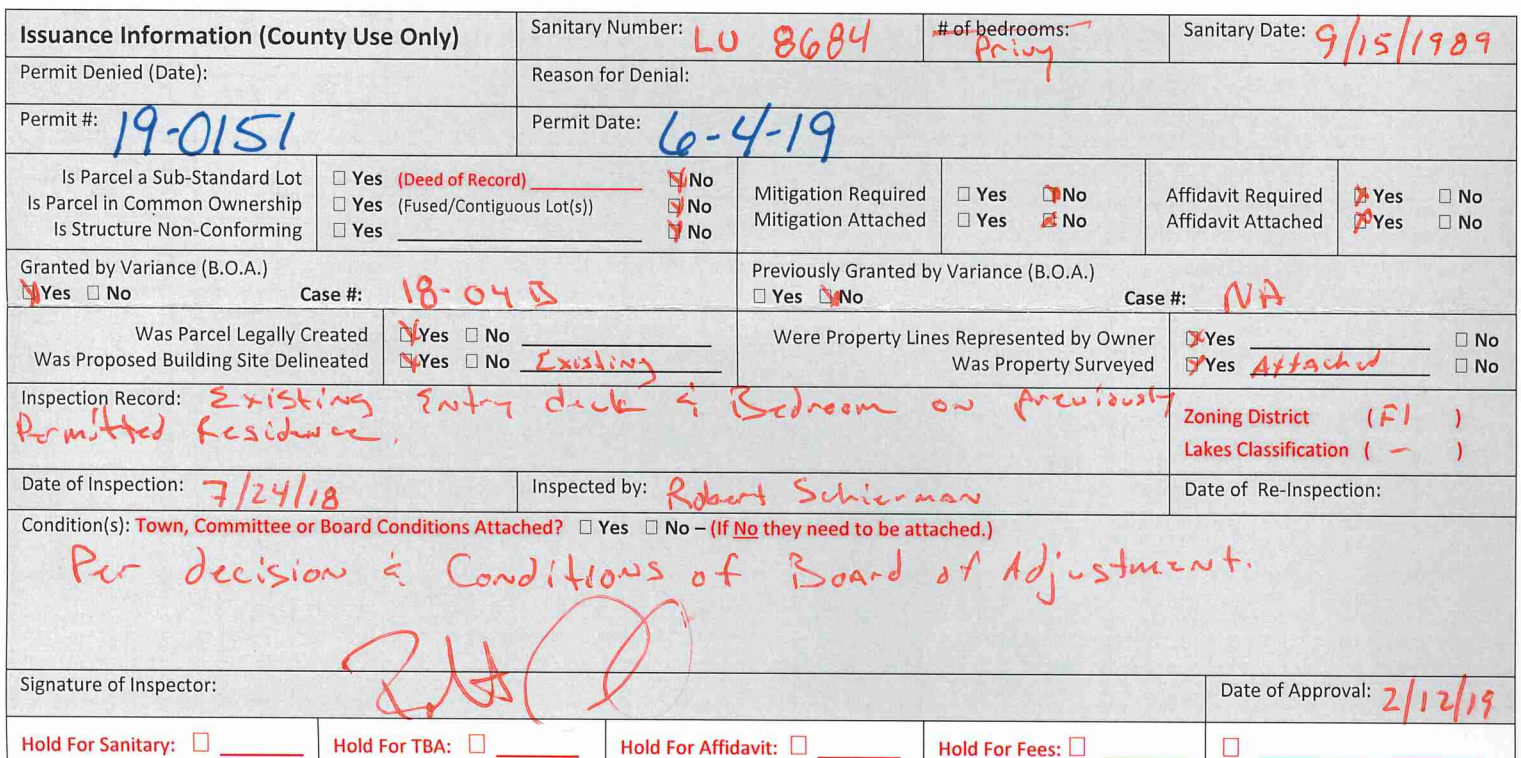 Issuance Information (County Use Only) Sanitary Number: LU 8684 # of bedrooms: Privy Sanitary Date: 9/15/1989
Permit Denied (Date): Reason for Denial:
Permit #: 19-0151 Permit Date: 6-4-19
Is Parcel a Sub-Standard Lot □ Yes (Deed of Record) ☒ No
Is Parcel in Common Ownership □ Yes (Fused/Contiguous Lot(s)) ☒ No
Is Structure Non-Conforming □ Yes ☒ No
Mitigation Required □ Yes ☒ No
Mitigation Attached □ Yes ☒ No
Affidavit Required ☒ Yes □ No
Affidavit Attached ☒ Yes □ No
Granted by Variance (B.O.A.)
☒ Yes □ No Case #: 18-04B
Previously Granted by Variance (B.O.A.)
□ Yes ☒ No Case #: NA
Was Parcel Legally Created ☒ Yes □ No
Was Proposed Building Site Delineated ☒ Yes □ No Existing
Were Property Lines Represented by Owner ☒ Yes □ No
Was Property Surveyed ☒ Yes Attached □ No
Inspection Record: Existing Entry deck & Bedroom on previously
Permitted Residence.
Zoning District (F1 )
Lakes Classification ( — )
Date of Inspection: 7/24/18 Inspected by: Robert Schierman Date of Re-Inspection:
Condition(s): Town, Committee or Board Conditions Attached? □ Yes □ No – (If No they need to be attached.)
Per decision & Conditions of Board of Adjustment.
Signature of Inspector: Date of Approval: 2/12/19
Hold For Sanitary: □ Hold For TBA: □ Hold For Affidavit: □ Hold For Fees: □ □